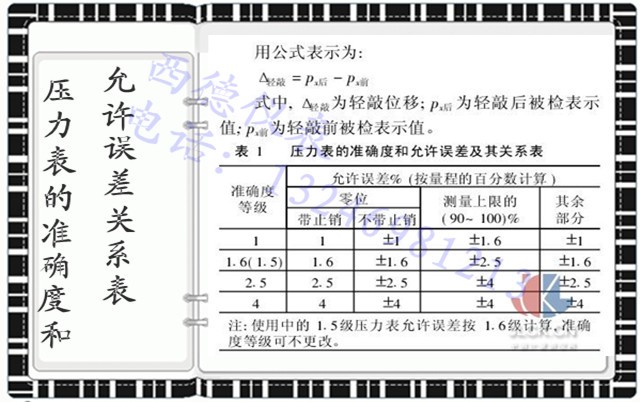 压力表的准确度和
允许误差关系表
用公式表示为:
Δ轻敲 = px后 - px前
式中, Δ轻敲为轻敲位移; px后为轻敲后被检表示
值; px前为轻敲前被检表示值。
表 1 压力表的准确度和允许误差及其关系表
准确度等级 允许误差% (按量程的百分数计算)
零位 测量上限的(90~ 100)% 其余部分
带止销 不带止销
1 1 ±1 ±1.6 ±1
1.6(1.5) 1.6 ±1.6 ±2.5 ±1.6
2.5 2.5 ±2.5 ±4 ±2.5
4 4 ±4 ±4 ±4
注: 使用中的 1.5级压力表允许误差按 1.6级计算, 准确
度等级可不更改。
西德仪表